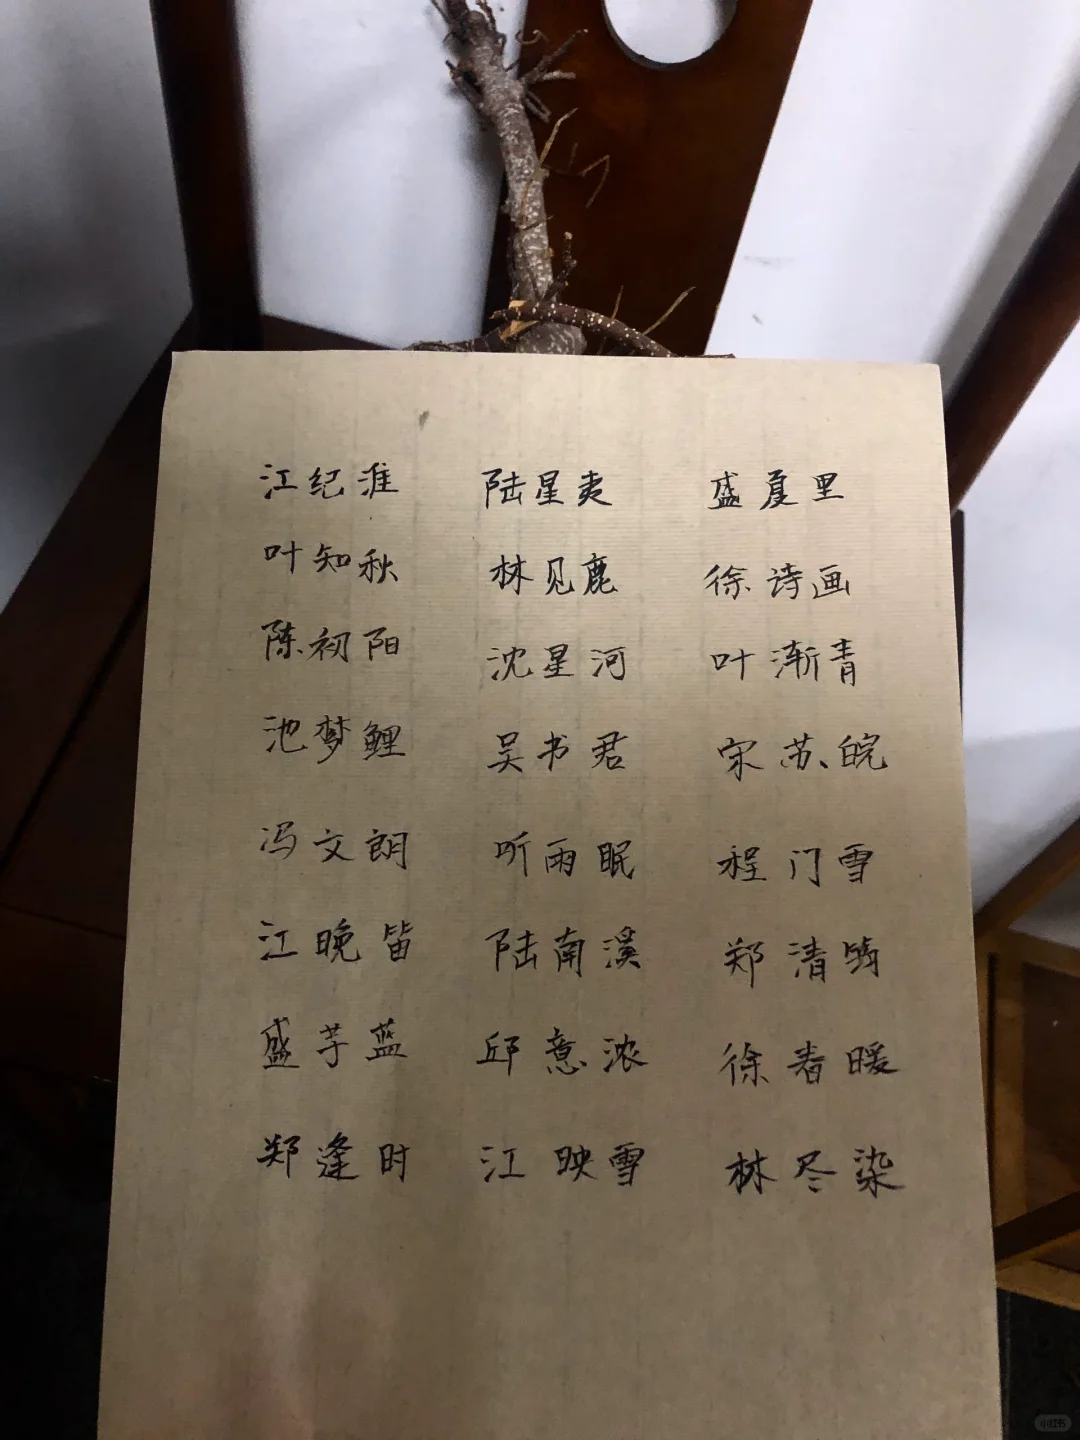 江纪淮 陆星 盛夏里
叶知秋 林见鹿 徐诗画
陈初阳 沈星河 叶渐青
池梦鲤 吴书君 宋苏皖
冯文朗 听雨眠 程门雪
江晚 陆南溪 郑清
盛芋蓝 邱意浓 徐春暖
郑逢时 江映雪 林尽染
小红书